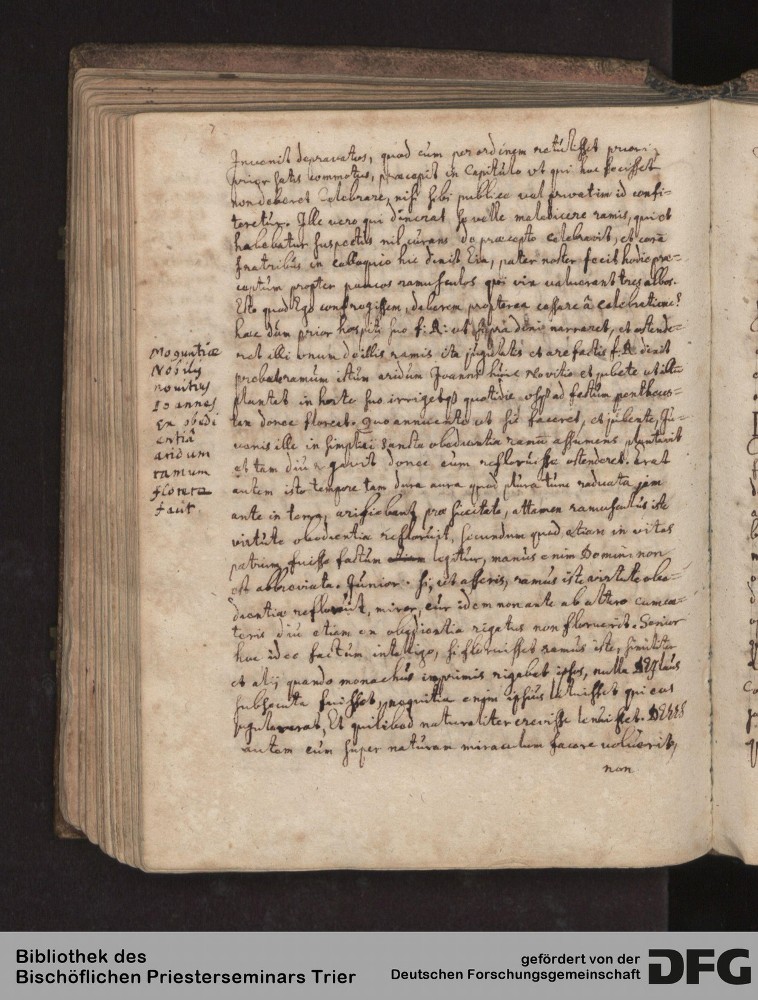 Invenit depravatos, quod cum per ordinem retulisset priori,
prior satis commotus, praecepit in Capitulo ut qui hoc fecisset
non deberet Celebrare, nisi sibi publice vel privatim id confi-
teretur. Ille vero qui dixerat se velle maledicere ramis, qui et
habebatur suspectus nil curans de praecepto celebravit, et cora
fratribus in colloquio hic dixit Eia, pater noster fecit hodie prae-
ceptum propter paucos ramusculos qui vix valuerant tres albos.
Esto quod Ego confregissem, deberem propterea cessare à celebratione?
haec dum prior hospiti suo narraret, et ostende-
ret illi unum de illis ramis ita jugulatis et arefactis dixit
probate ramum istum aridum Joanni huic Novitio et jubete ut illu
plantet in horto suo irrigetq3 quotidie usq3 ad festum penthecos-
ten donec floreat. Quo annuente ut sic faceret, et jubente, Ju-
venis ille in simplici sancta obedientia ramū assumens plantavit
et tam diu rigavit donec eum refloruisse ostenderet. Erat
autem isto tempore tam dura aura quod plura tunc radicata jam
ante in terra, arefiebant prae siccitate, attamen ramusculus iste
virtute obedientiae refloruit, secundum quod etiam in vitas
patrum fuisse factum legitur, manus enim Domini non
est abbreviata. Junior. Si, ut asseris, ramus iste virtute obe-
dientiae refloruit, miror, cur idem non ante ab altero cum cae-
teris diu etiam ex obedientia rigatus non floruerit. Senior
hoc ideo factum intelligo, si floruisset ramus iste, similiter
et alij quando monachus inprimis rigabat ipsos, nulla
subsecuta fuisset, nequitia enim ipsius latuisset qui eos
jugulaverat, Et quilibet naturaliter crevisse
autem cum super naturam miraculum facere voluerit,
non
Moguntiae
Nobilis
novitius
Joannes
ex obedi
entia
aridum
ramum
florere
facit.
Bibliothek des
Bischöflichen Priesterseminars Trier
gefördert von der
Deutschen Forschungsgemeinschaft
DFG